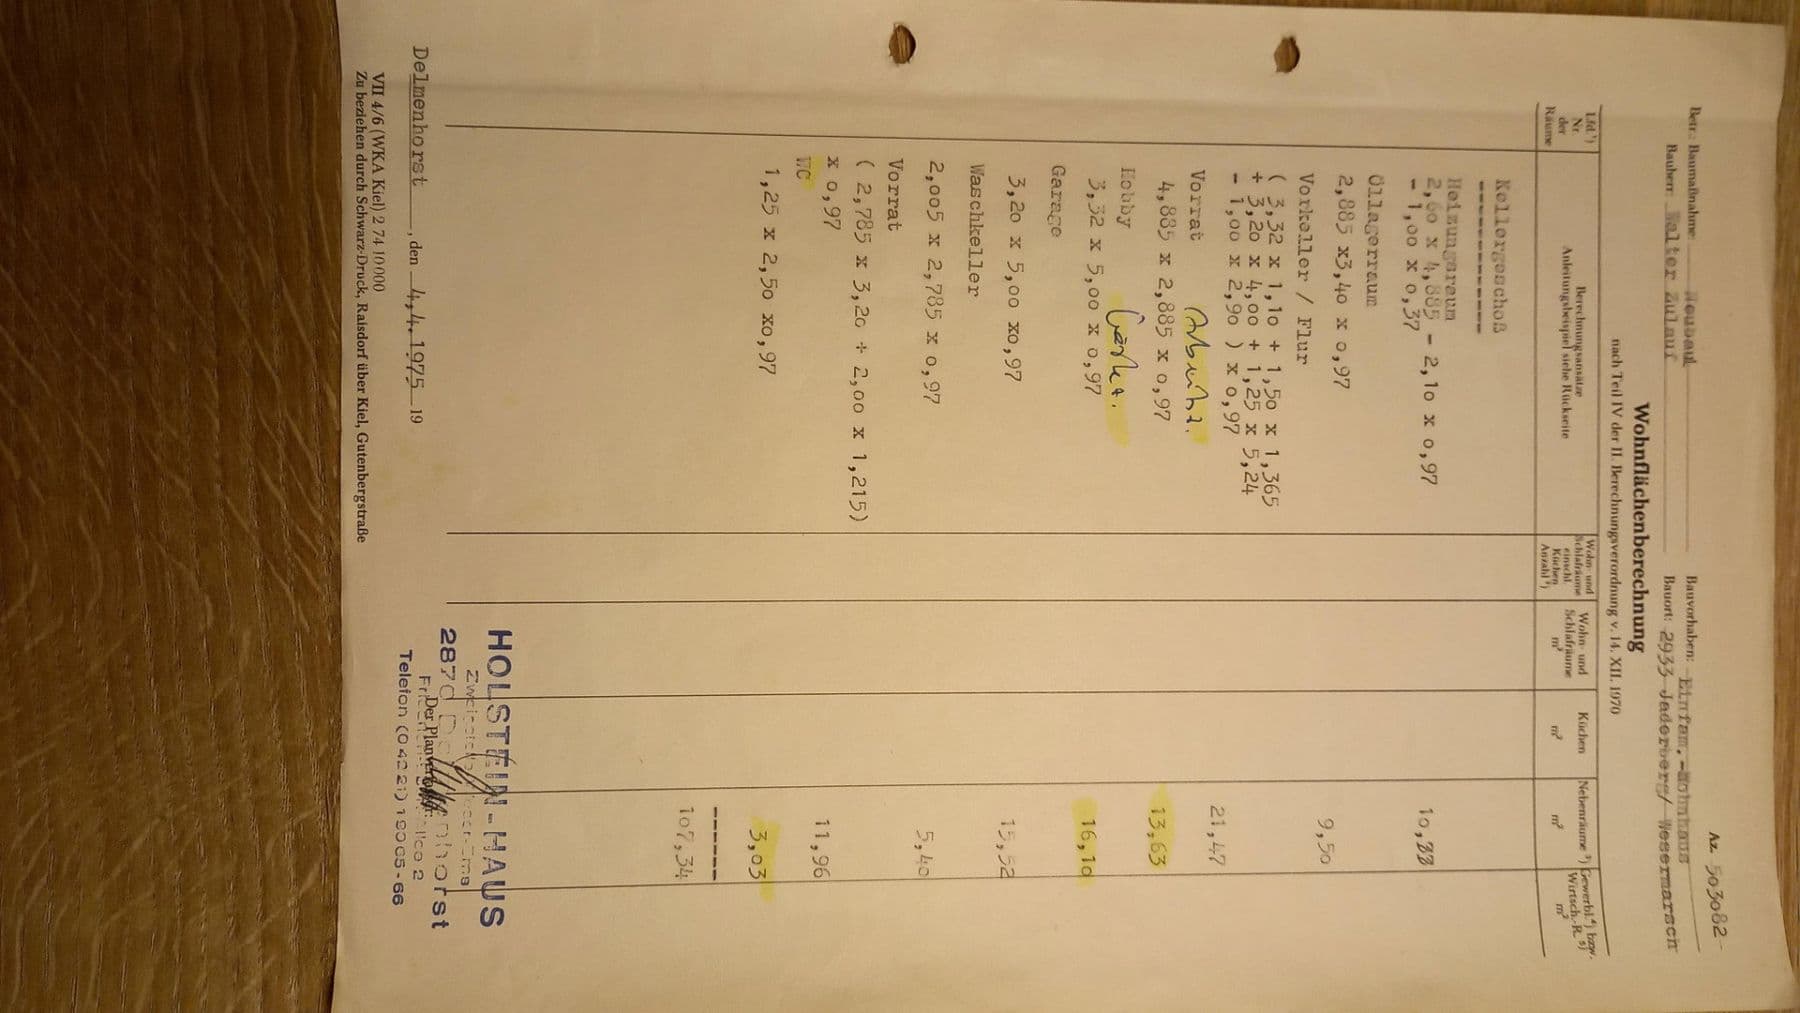 Az. 503082-
Betr.: Baumaßnahme: Neubau Bauvorhaben: Einfam.-Wohnhaus
Bauherr: Walter Zulauf Bauort: 2933 Jaderberg/ Wesermarsch
Wohnflächenberechnung
nach Teil IV der II. Berechnungsverordnung v. 14. XII. 1970
Lfd.¹) Nr. der Räume
Berechnungsansätze
Anleitungsbeispiel siehe Rückseite
Wohn- und Schlafräume einschl. Küchen Anzahl²)
Wohn- und Schlafräume m²
Küchen m²
Nebenräume ³) m²
Gewerbl.⁴) bzw. Wirtsch.-R.⁵) m²
Kellergeschoß
-------------
Heizungsraum
2,60 x 4,885 - 2,10 x 0,97
- 1,00 x 0,37 10,88
Öllagerraum
2,885 x3,40 x 0,97 9,50
Vorkeller / Flur
( 3,32 x 1,10 + 1,50 x 1,365
+ 3,20 x 4,00 + 1,25 x 5,24
- 1,00 x 2,90 ) x 0,97 21,47
Vorrat
4,885 x 2,885 x 0,97 13,63
Hobby
3,32 x 5,00 x 0,97 16,10
Garage
3,20 x 5,00 x0,97 15,52
Waschkeller
2,005 x 2,785 x 0,97 5,40
Vorrat
( 2,785 x 3,20 + 2,00 x 1,215)
x 0,97 11,96
WC
1,25 x 2,50 x0,97 3,03
------
107,34
HOLSTEIN-HAUS
2870 Delmenhorst
Der Planverfasser:
Telefon (04221) 19065-66
Delmenhorst, den 4,4.1975 19
VII 4/6 (WKA Kiel) 2 74 10000
Zu beziehen durch Schwarz-Druck, Raisdorf über Kiel, Gutenbergstraße